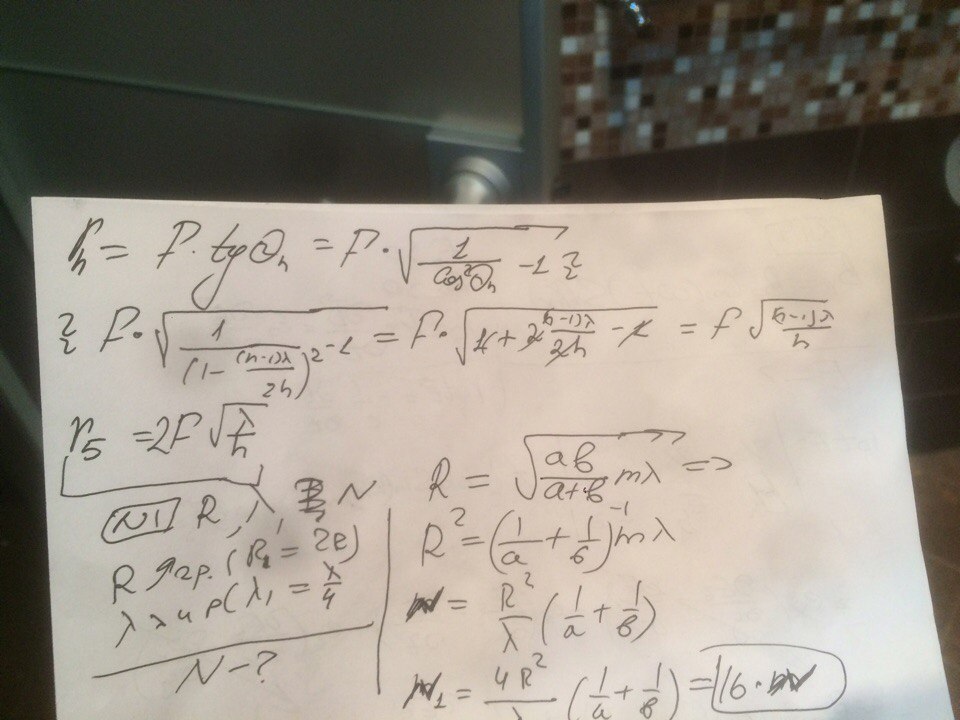 r_h = F · tgΘ_h = F · √(1/cos²Θ_h − 1) ≈
≈ F · √(1/(1 − (h−1)λ/2h)² − 1) = F · √(1 + 2(h−1)λ/2h − 1) = F √((h−1)λ/h)
r_5 = 2F √(λ/h)
N1 R, λ, N
R ↗ 2р. (R_1 = 2R)
λ ↘ 4 р (λ_1 = λ/4
N − ?
R = √(ab/(a+b) mλ) =>
R² = (1/a + 1/b)⁻¹ mλ
= R²/λ (1/a + 1/b)
₁ = 4R²/λ (1/a + 1/b) = 16 ·